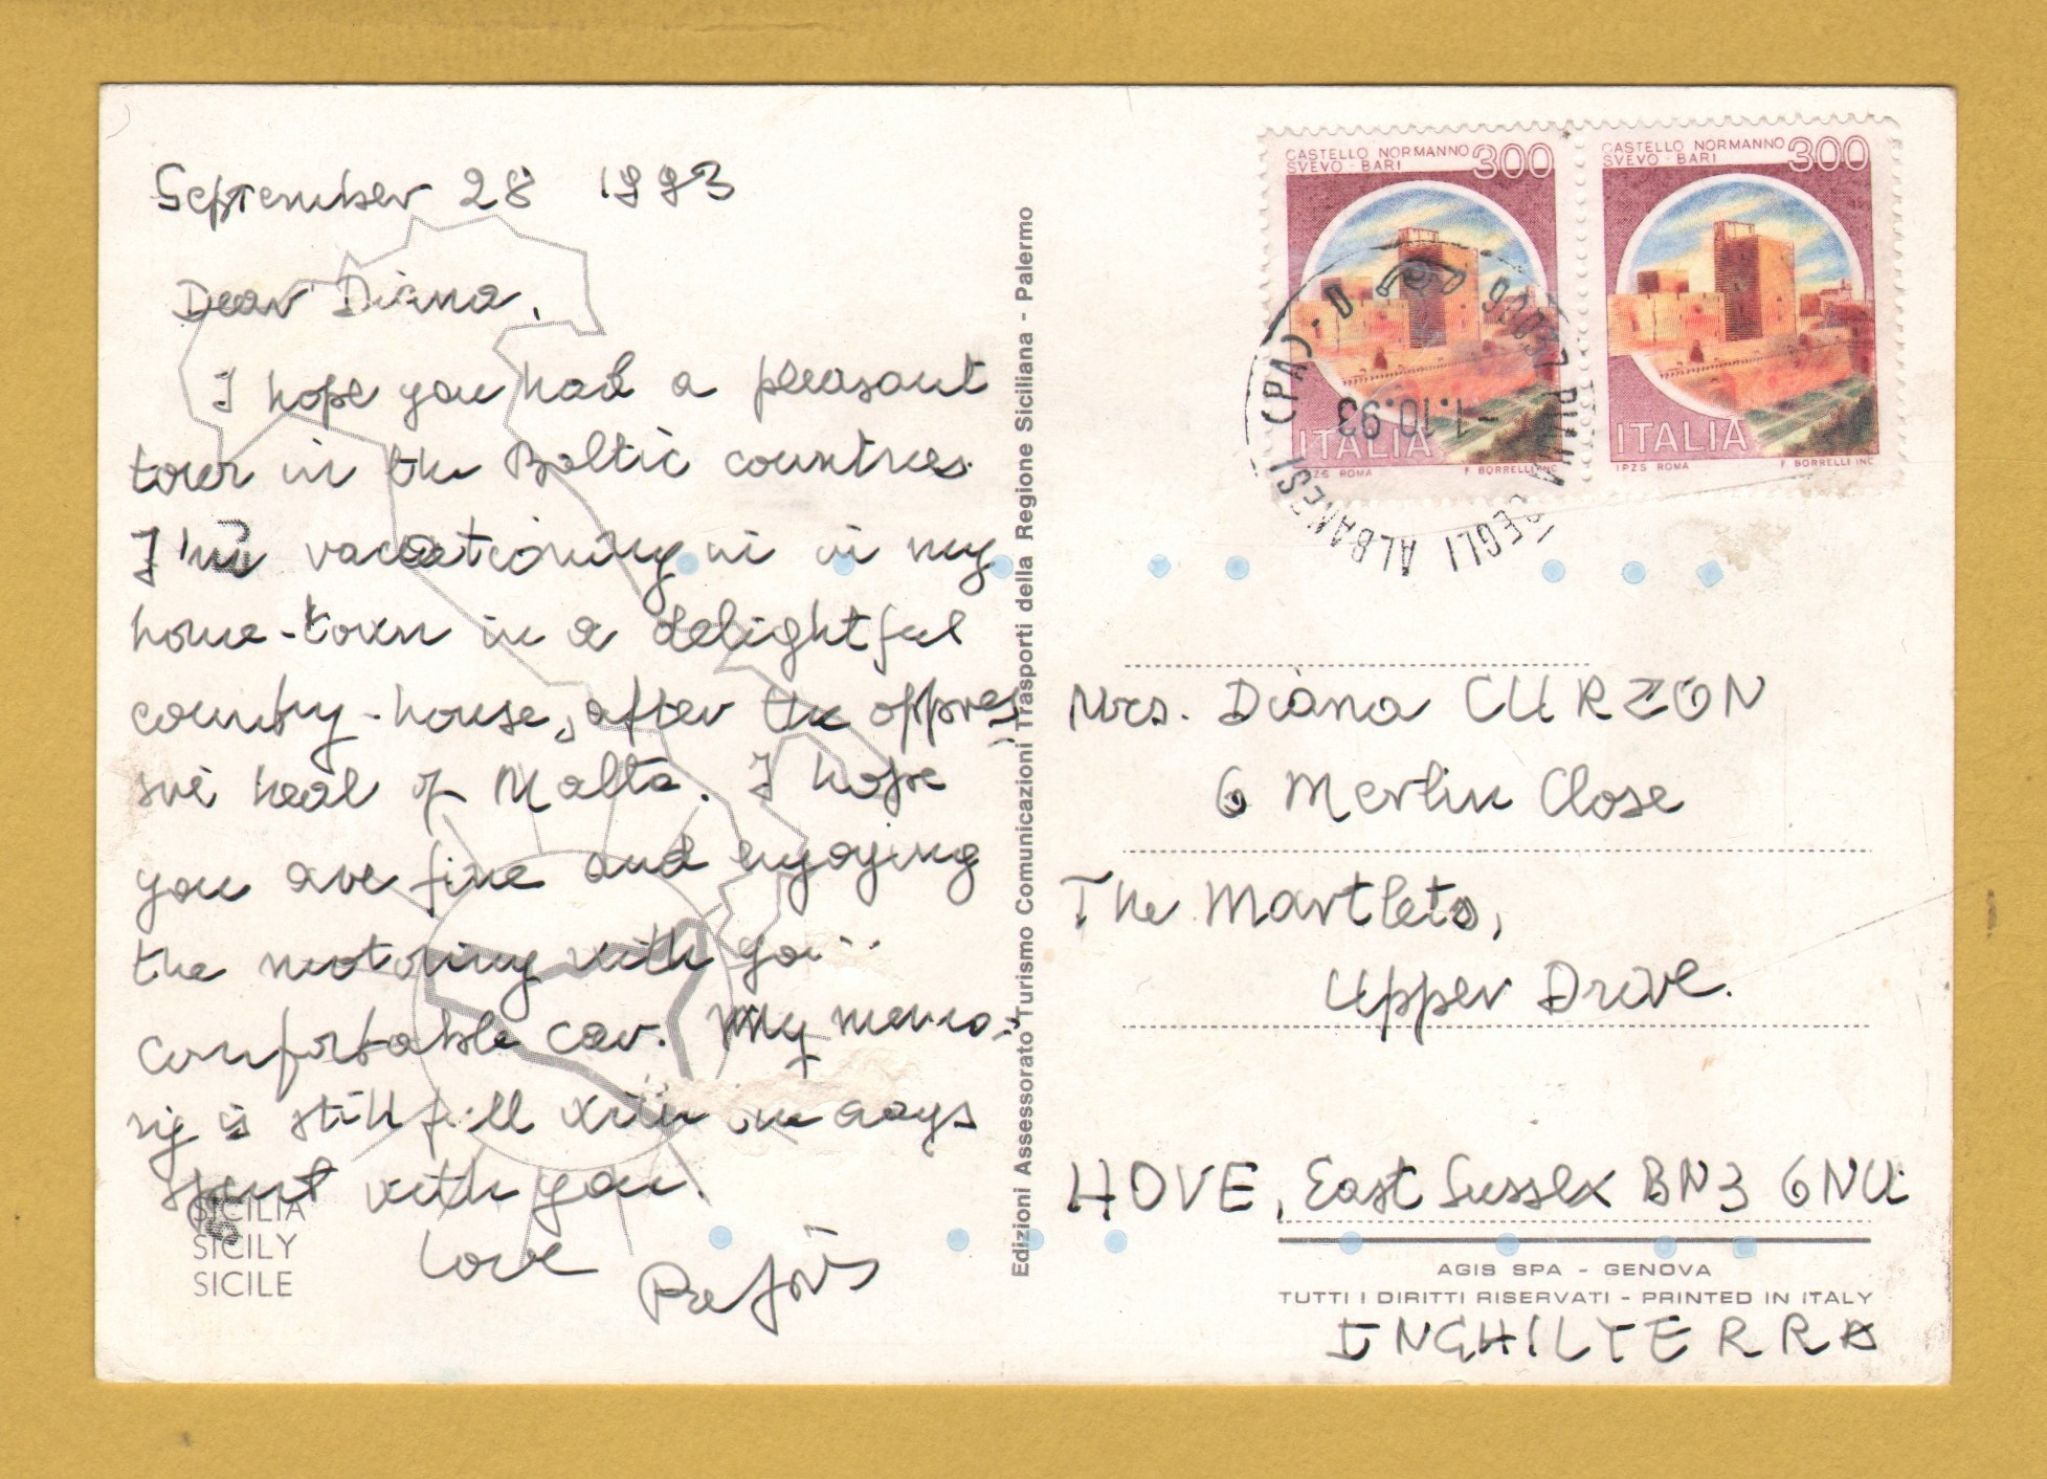 September 28 1993
Dear Diana,
I hope you had a pleasant
tour in the Baltic countries.
I'm vacationing in in my
home-town in a delightful
country-house, after the oppres
sive heat of Malta. I hope
you are fine and enjoying
the motoring with you
comfortable car. My memo-
ry is still full with the days
spent with you.
Love
SICILIA
SICILY
SICILE
Edizioni Assessorato Turismo Comunicazioni Trasporti della Regione Siciliana - Palermo
CASTELLO NORMANNO
SVEVO - BARI
300
ITALIA
IPZS ROMA F. BORRELLI INC
CASTELLO NORMANNO
SVEVO - BARI
300
ITALIA
IPZS ROMA F. BORRELLI INC
90037 PIANA DEGLI ALBANESI (PA) - D
-1.10.93
Mrs. Diana CURZON
6 Merlin Close
The Martlets,
Upper Drive.
HOVE, East Sussex BN3 6NU
AGIS SPA - GENOVA
TUTTI I DIRITTI RISERVATI - PRINTED IN ITALY
INGHILTERRA